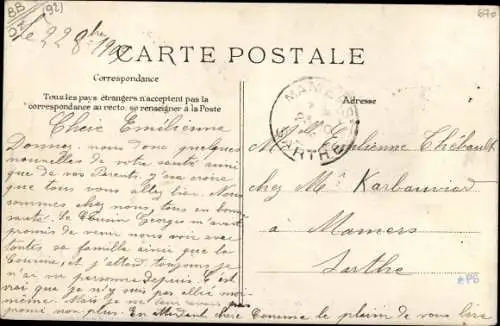 BB
(92)
le 22 8bre 1907
670
CARTE POSTALE
Correspondance
Tous les pays étrangers n'acceptent pas la
correspondance au recto, se renseigner à la Poste
Adresse
MAMERS
SARTHE
Chère Emilienne
Donnez nous donc quelques
nouvelles de votre santé ainsi
que de vos Parents. J'ose croire
que tous vous allez bien. Nous
sommes chez nous, tous en bonne
santé. Le Cousin Georges m'avait
promis de venir nous voir avec
toute sa famille ainsi que la
Cousine, et j'attend toujours je
n'ai vu personne Depuis. C'est
vrai que je n'y suis pas allée moi
même. Mais je ne
promi non plus. En attendant chère Cousine le plaisir de vous lire
Melle Emilienne Thébault
chez Mr Karbauviard
à Mamers
Sarthe